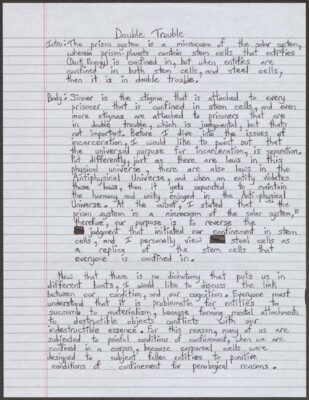 Double Trouble
Intro: The prison system is a microcosm of the solar system,
wherein prison-planets contain stem cells that entities
(Dark Energy) is confined in, but when entities are
confined in both stem cells, and steel cells,
then it is in double trouble.
Body: Sinner is the stigma, that is attached to every
prisoner that is confined in stem cells, and even
more stigmas are attached to prisoners that are
in double trouble, which is judgmental, but that's
not important. Before I dive into the issues of
incarceration, I would like to point out that
the universal purpose for incarceration, is separation.
Put differently, just as there are laws in this
physical universe, there are also laws in the
Antiphysical Universe, and when an entity violates
those laws, then it gets separated to maintain
the harmony and unity enjoyed in the Anti-physical
Universe. At the outset, I stated that "the
prison system is a microcosm of the solar system,"
therefore, our purpose is to reverse the
judgment that initiated our confinement in stem
cells, and I personally view steel cells as
a replica of the stem cells that
everyone is confined in.
Now that there is no dichotomy that puts us in
different boats, I would like to discuss the link
between our condition, and our cognition. Everyone must
understand that it is problematic for entities to
succumb to materialism, because forming mental attachments
to destructible objects conflicts with our
indestructible essence. For this reason, many of us are
subjected to painful conditions of confinement, when we are
confined in a corpus, because corporeal cells are
designed to subject fallen entities to punitive
conditions of confinement for penological reasons.